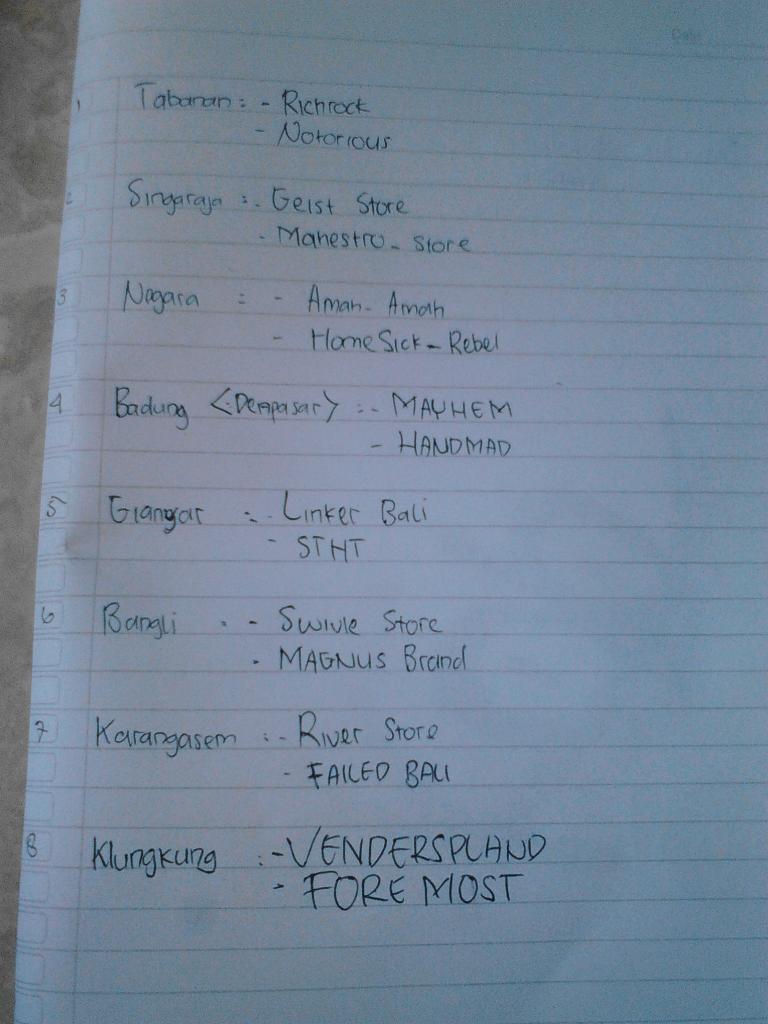 Date
1 Tabanan : - Richrock
- Notorious
2 Singaraja : - Geist Store
- Manestro - Store
3 Nagara : - Aman - Amah
- HomeSick - Rebel
4 Badung <Denpasar> : - MAYHEM
- HANDMAD
5 Gianyar : - Linker Bali
- STHT
6 Bangli : - Swivle Store
- MAGNUS Brand
7 Karangasem : - River Store
- FAILED BALI
8 Klungkung : - VENDERSPLAND
- FORE MOST